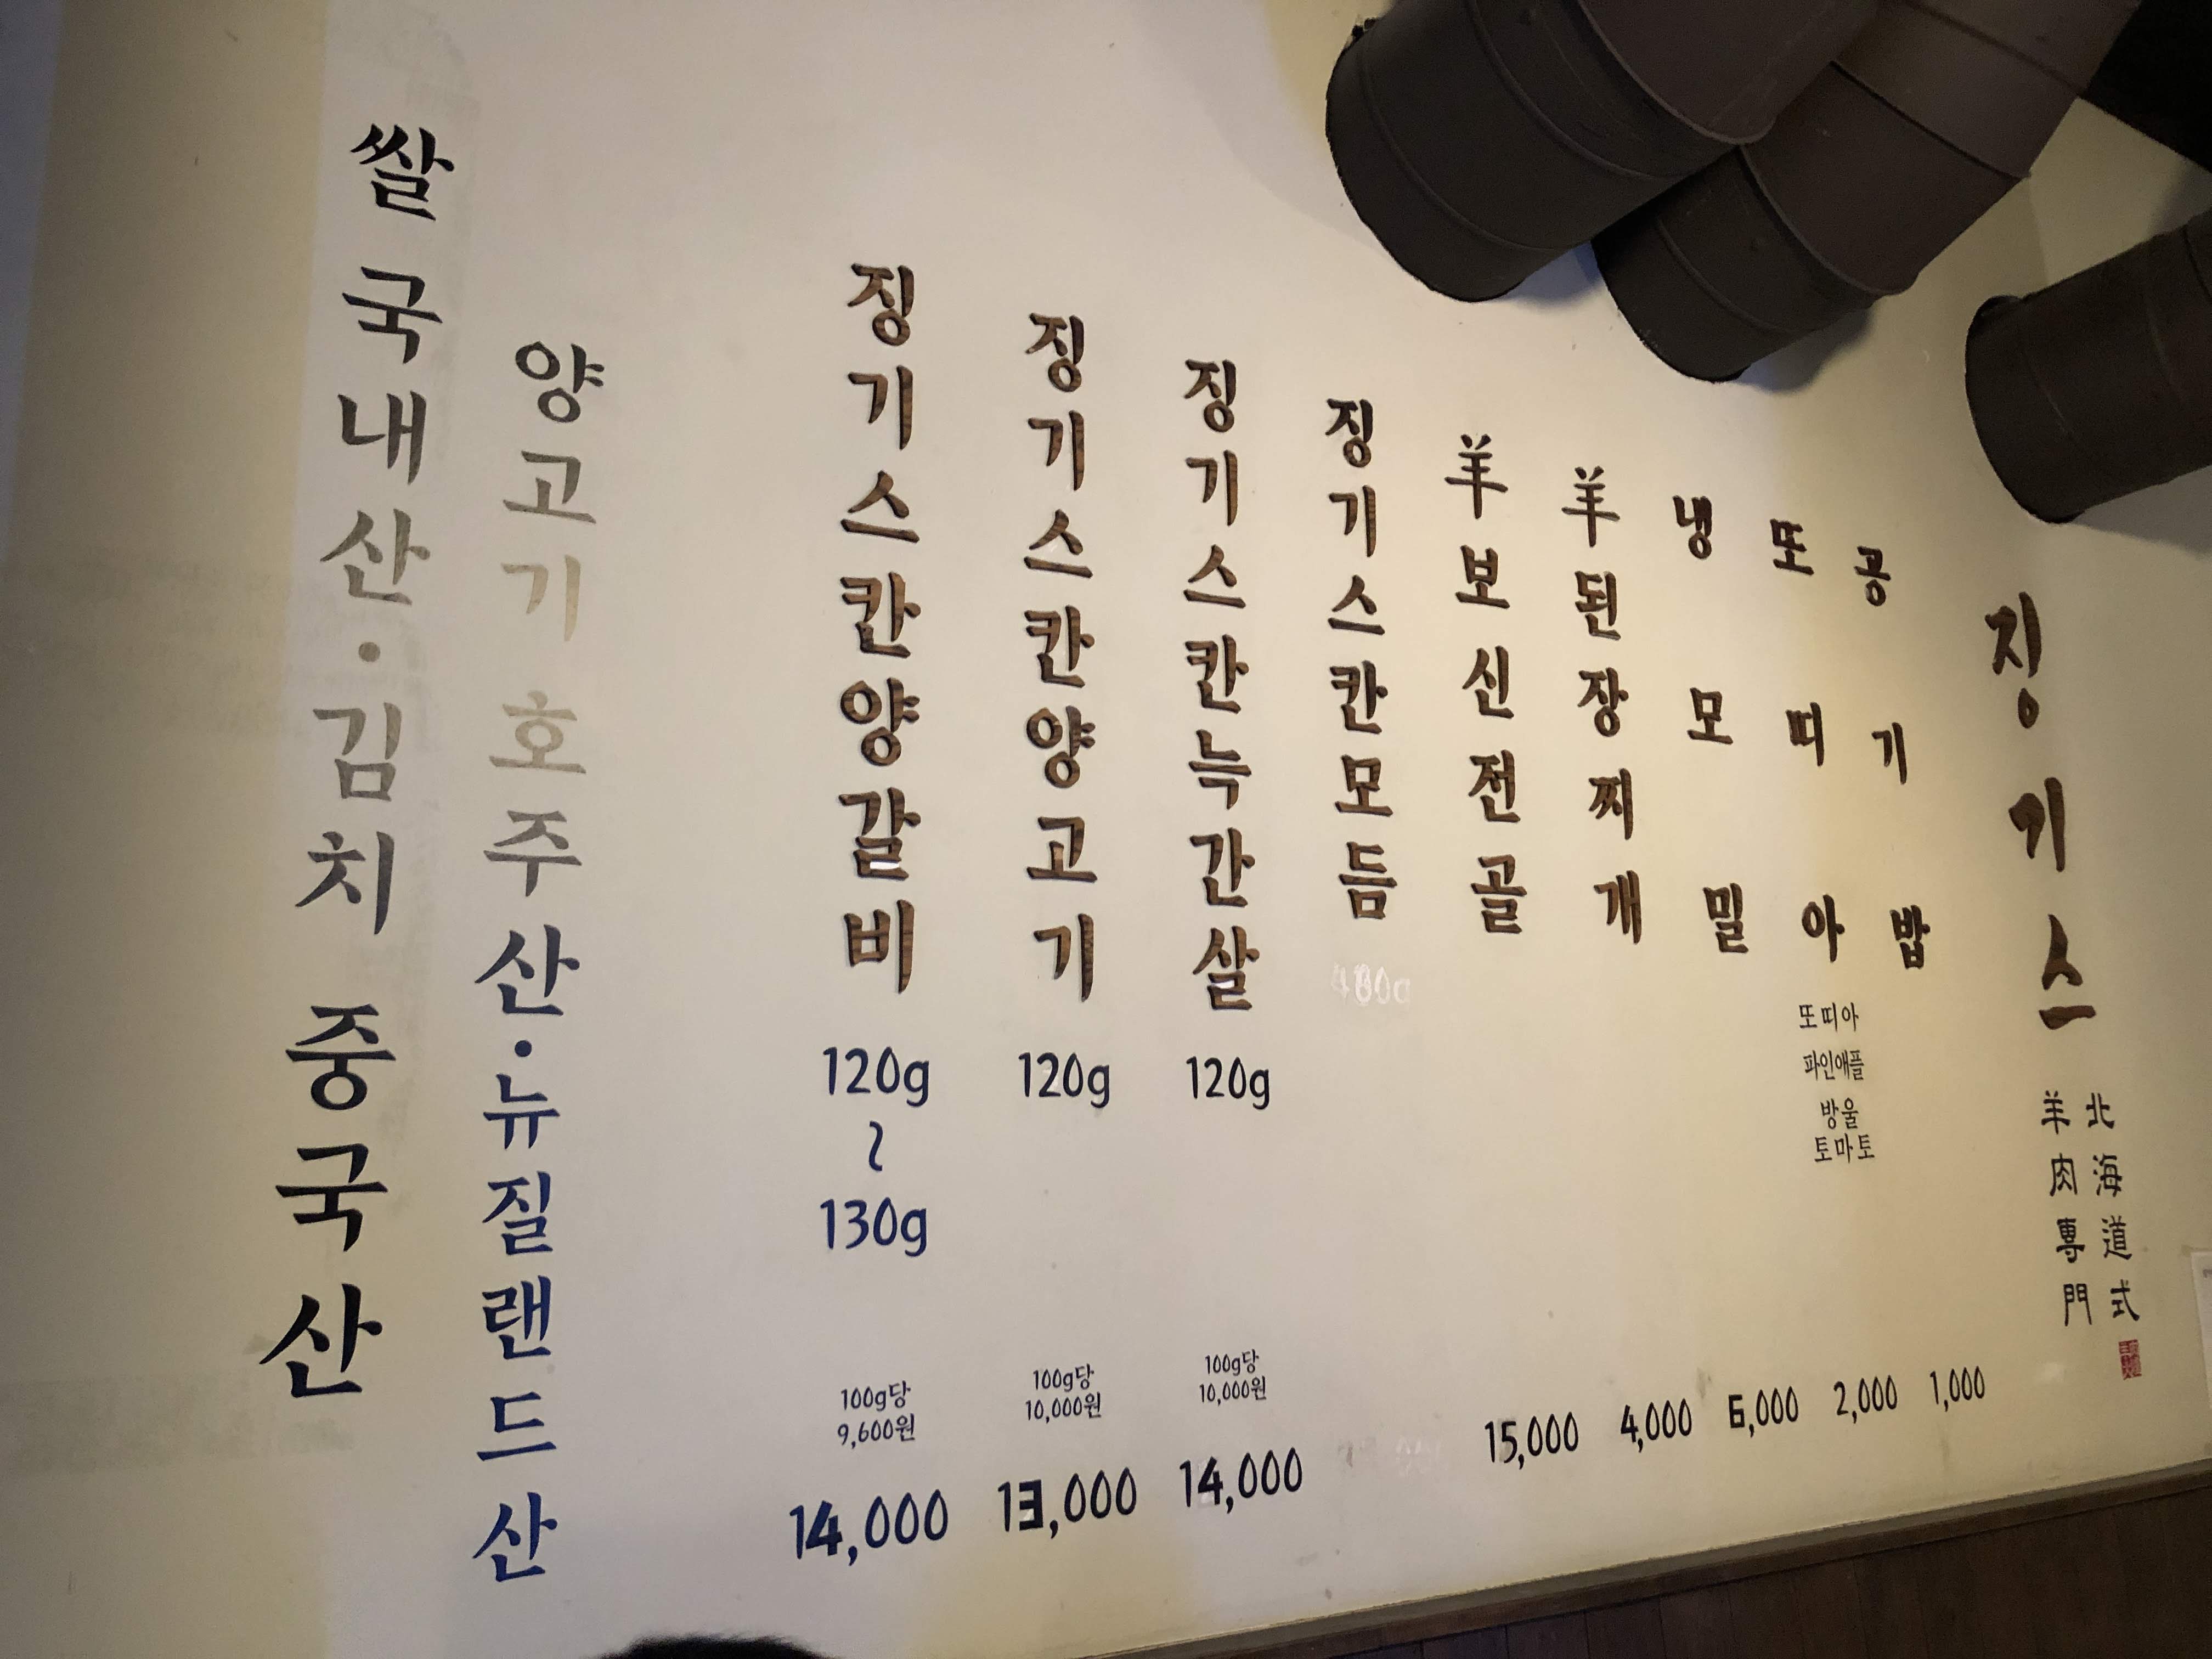 쌀 국내산・김치 중국산
양고기 호주산・뉴질랜드산
징기스칸양갈비
120g
~
130g
100g당
9,600원
14,000
징기스칸양고기
120g
100g당
10,000원
13,000
징기스칸늑간살
120g
100g당
10,000원
14,000
징기스칸모듬
羊보신전골
15,000
羊된장찌개
4,000
냉모밀
6,000
또띠아
또띠아
파인애플
방울
토마토
2,000
공기밥
1,000
징기스
北海道式
羊肉專門